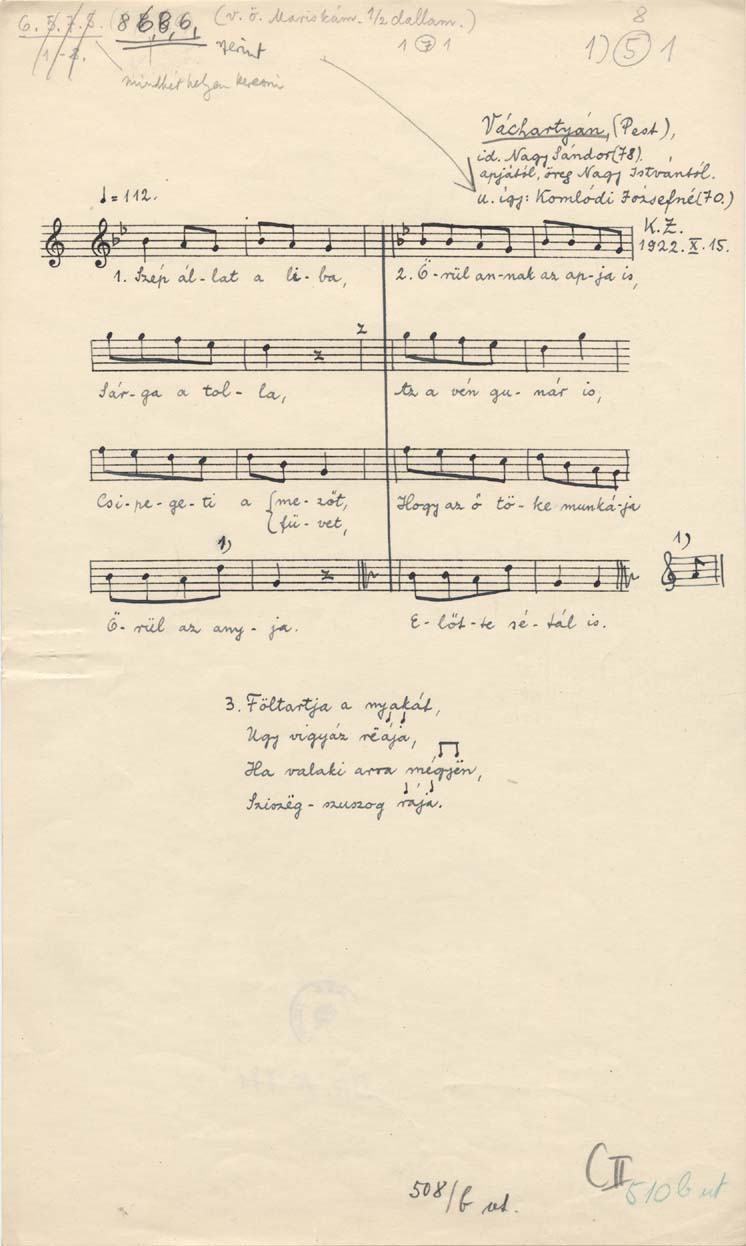 6. 5. 7. 8. (8 6, 8, 6, (v. ö. Mariskám. 1/2 dallam.)
1-2. szerint 1 (7) 1
8
1) (5) 1
mindkét helyen keresni
Váchartyán, (Pest),
id. Nagy Sándor (78).
apjától, öreg Nagy Istvántól.
u. így: Komlódi Józsefné (70.)
K. Z.
1922. X. 15.
♩ = 112.
1. Szép ál-lat a li-ba, 2. Ö-rül an-nak az ap-ja is,
Sár-ga a tol-la, Az a vén gu-nár is,
Csi-pe-ge-ti a {me-zőt, Hogy az ő tö-ke munká-ja
{fü-vet,
1) 1)
Ö-rül az any-ja. E-lőt-te sé-tál is.
3. Föltartja a nyakát,
Ugy vigyáz rëája,
Ha valaki arra mégyjën,
Sziszëg-szuszog rája.
C II
508/b ut. 510 b ut